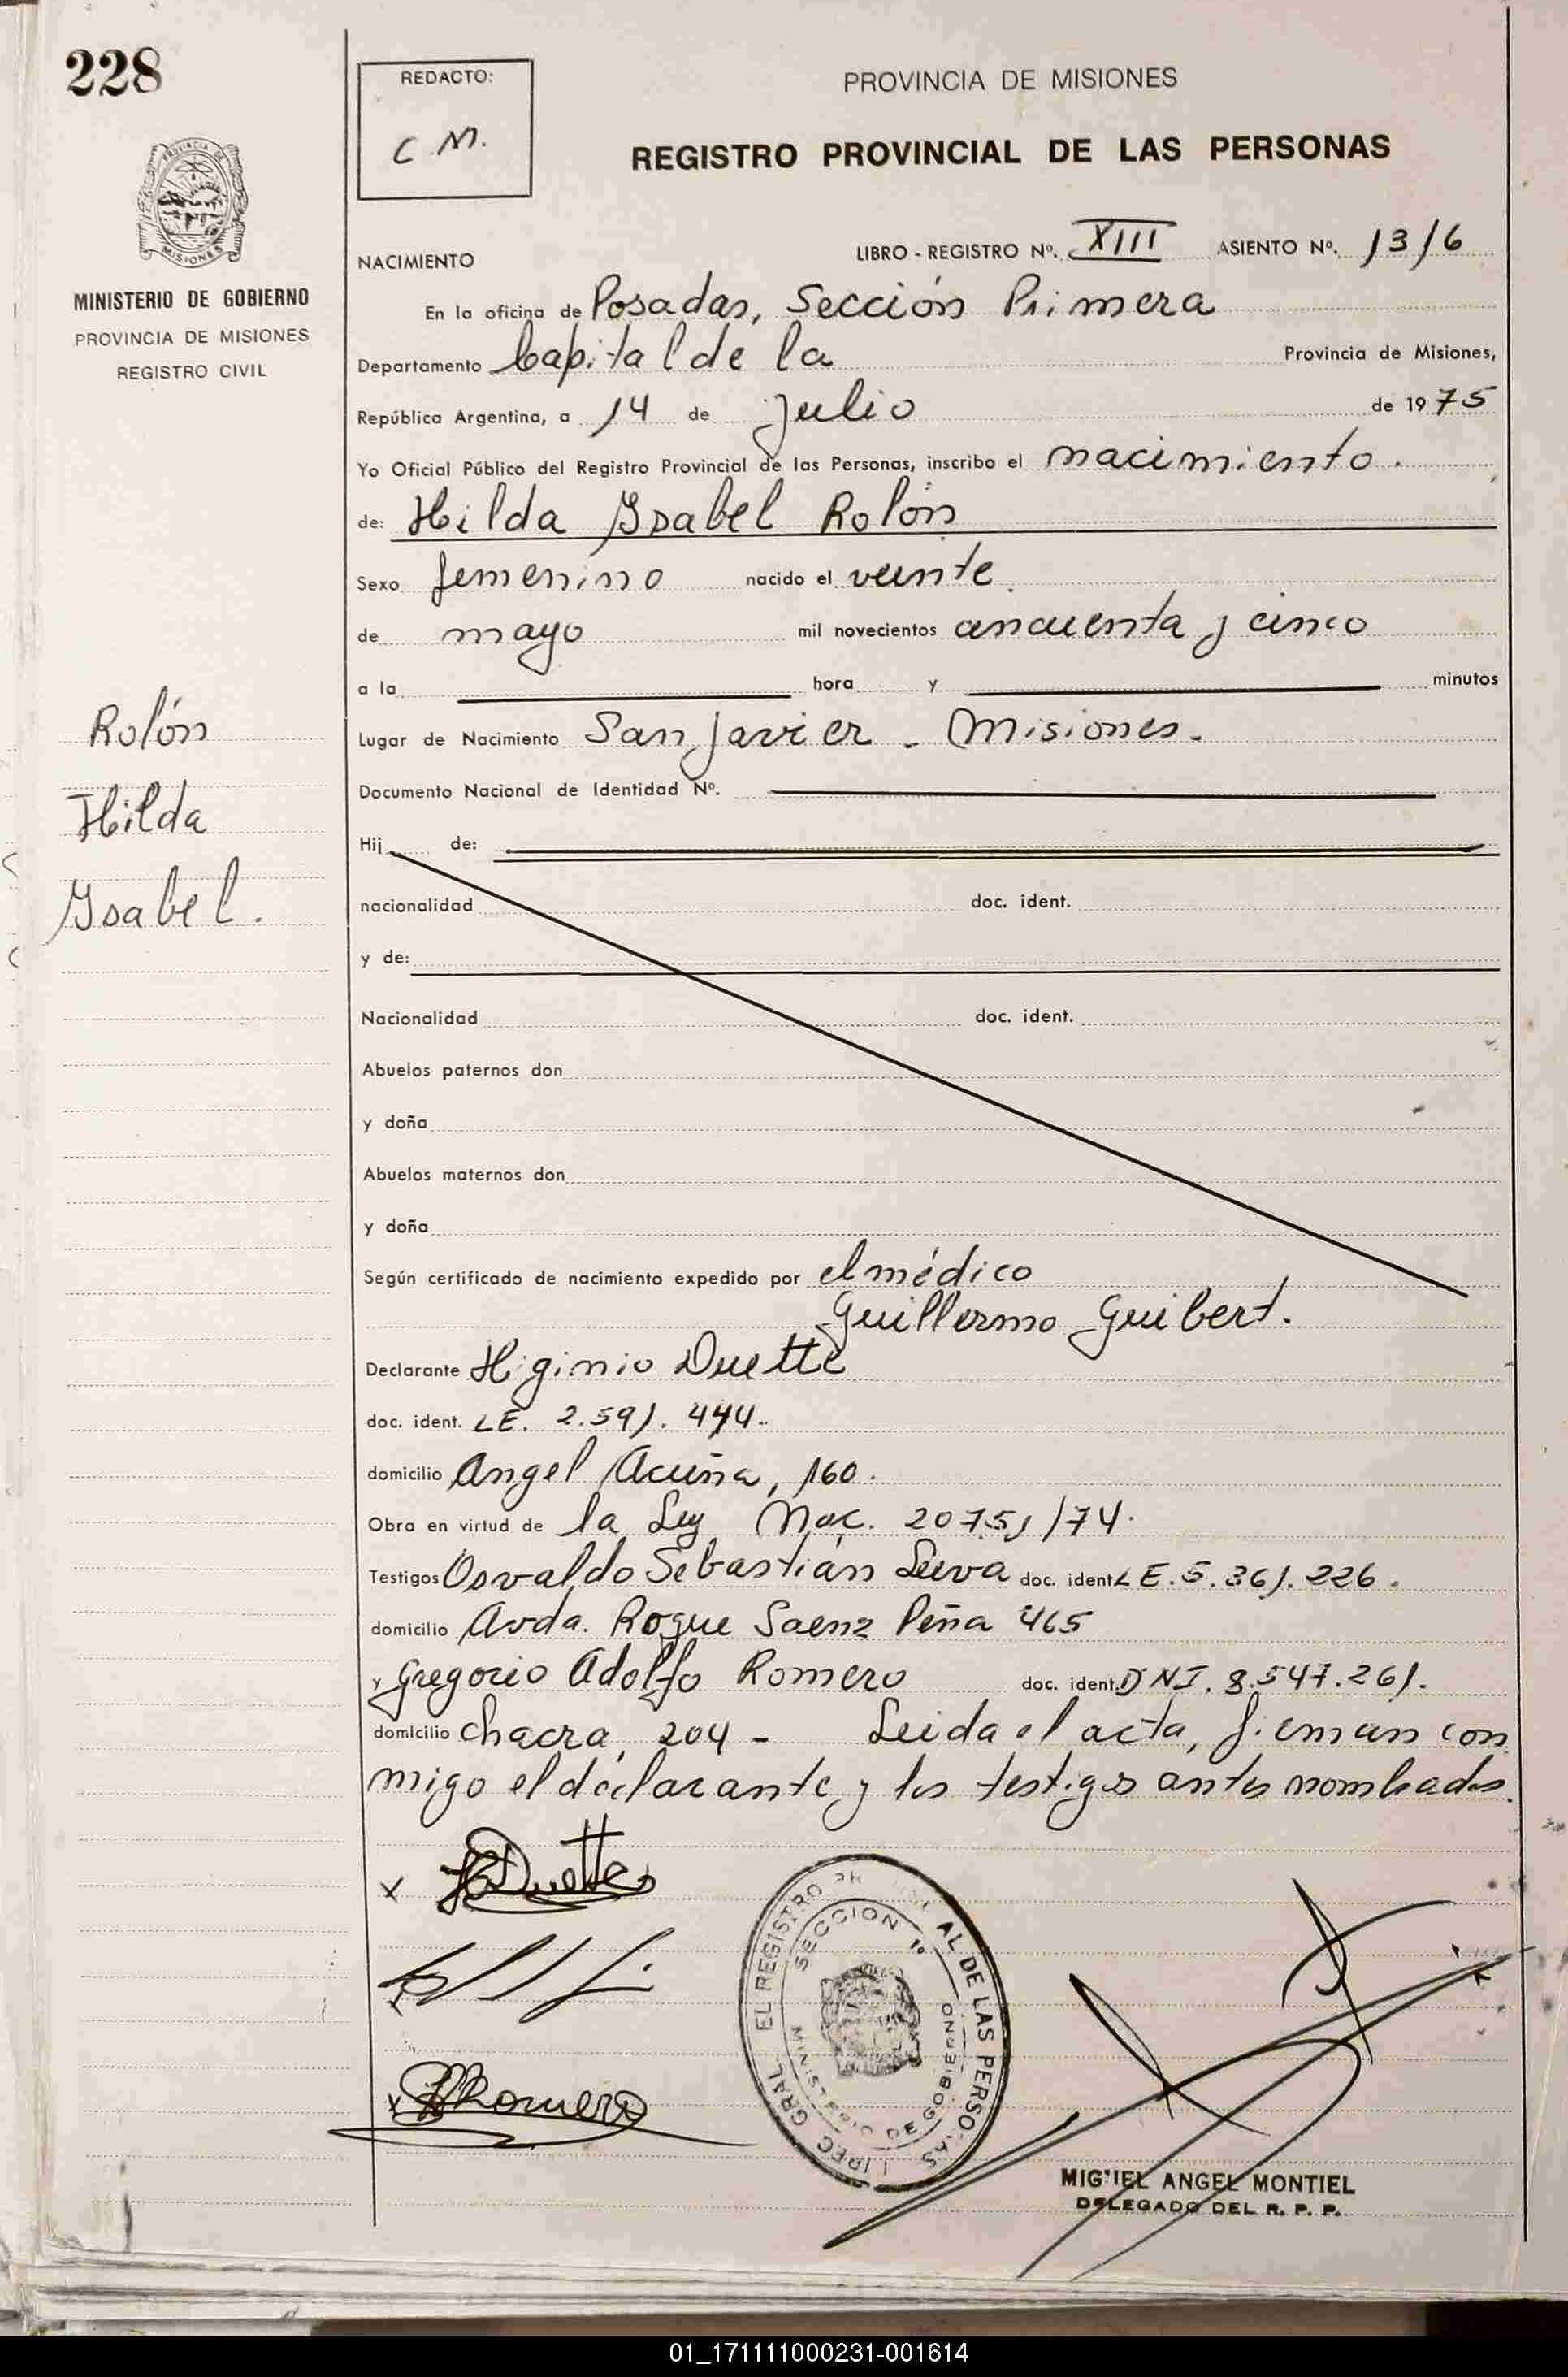 228
REDACTO:
C.M.
PROVINCIA DE MISIONES
REGISTRO PROVINCIAL DE LAS PERSONAS
MINISTERIO DE GOBIERNO
PROVINCIA DE MISIONES
REGISTRO CIVIL
NACIMIENTO LIBRO - REGISTRO Nº. XIII ASIENTO Nº. 1316
En la oficina de Posadas, Sección Primera
Departamento Capital de la Provincia de Misiones,
República Argentina, a 14 de Julio de 1975
Yo Oficial Público del Registro Provincial de las Personas, inscribo el nacimiento.
de: Hilda Ysabel Rolón
Sexo femenino nacido el veinte
de mayo mil novecientos cincuenta y cinco
a la hora y minutos
Rolón
Hilda
Ysabel.
Lugar de Nacimiento San Javier - Misiones.
Documento Nacional de Identidad Nº.
Hij de:
nacionalidad doc. ident.
y de:
Nacionalidad doc. ident.
Abuelos paternos don
y doña
Abuelos maternos don
y doña
Según certificado de nacimiento expedido por el médico
Guillermo Guibert.
Declarante Higinio Duette
doc. ident. LE. 2.591.444.
domicilio Angel Acuña, 160.
Obra en virtud de la Ley Nac. 20751/74.
Testigos Osvaldo Sebastián Leiva doc. ident LE. 5.361.226.
domicilio Avda. Roque Saenz Peña 465
y Gregorio Adolfo Romero doc. ident. DNI. 8.547.261.
domicilio chacra, 204 - Leida el acta, firman con
migo el declarante y los testigos antes nombrados.
x HDuette
x Romero
EL REGISTRO AL DE LAS PERSONAS
SECCION 1º
MINISTERIO DE GOBIERNO
MIGUEL ANGEL MONTIEL
DELEGADO DEL R. P. P.
01_171111000231-001614